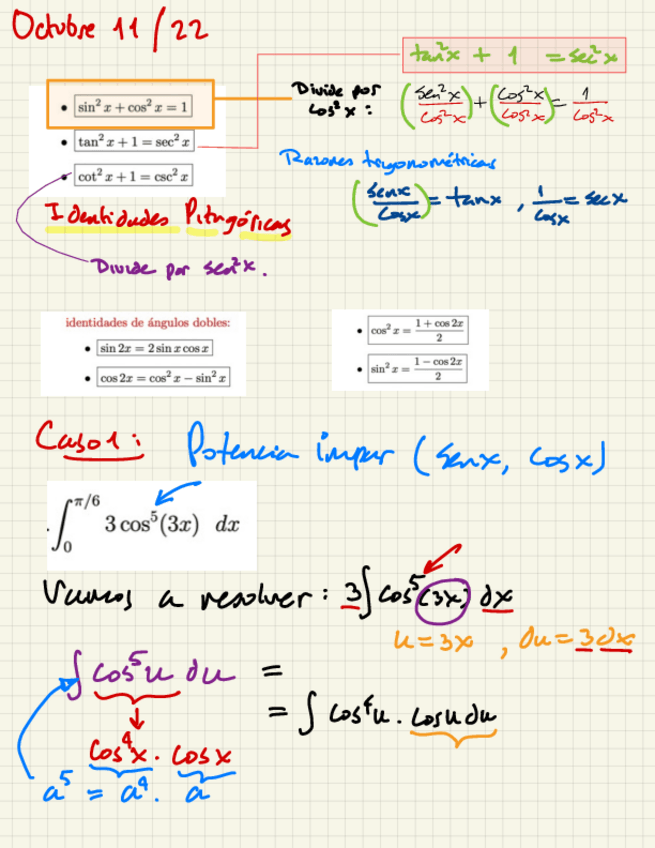 Octubre 11/22
tan²x + 1 = sec²x
• sin² x + cos² x = 1
Divide por cos²x :
(sen²x / cos²x) + (cos²x / cos²x) = 1 / cos²x
• tan² x + 1 = sec² x
Razones trigonométricas
• cot² x + 1 = csc² x
(senx / cosx) = tanx , 1 / cosx = secx
Identidades Pitagóricas
Divide por sen²x.
identidades de ángulos dobles:
• sin 2x = 2 sin x cos x
• cos 2x = cos² x − sin² x
• cos² x = (1 + cos 2x) / 2
• sin² x = (1 − cos 2x) / 2
Caso 1: Potencia impar (senx, cosx)
. ∫₀^(π/6) 3 cos⁵(3x) dx
Vamos a resolver : 3∫cos⁵(3x) dx
u = 3x , du = 3dx
∫ cos⁵u du =
= ∫ cos⁴u . cosu du
cos⁴x . cosx
a⁵ = a⁴ . a